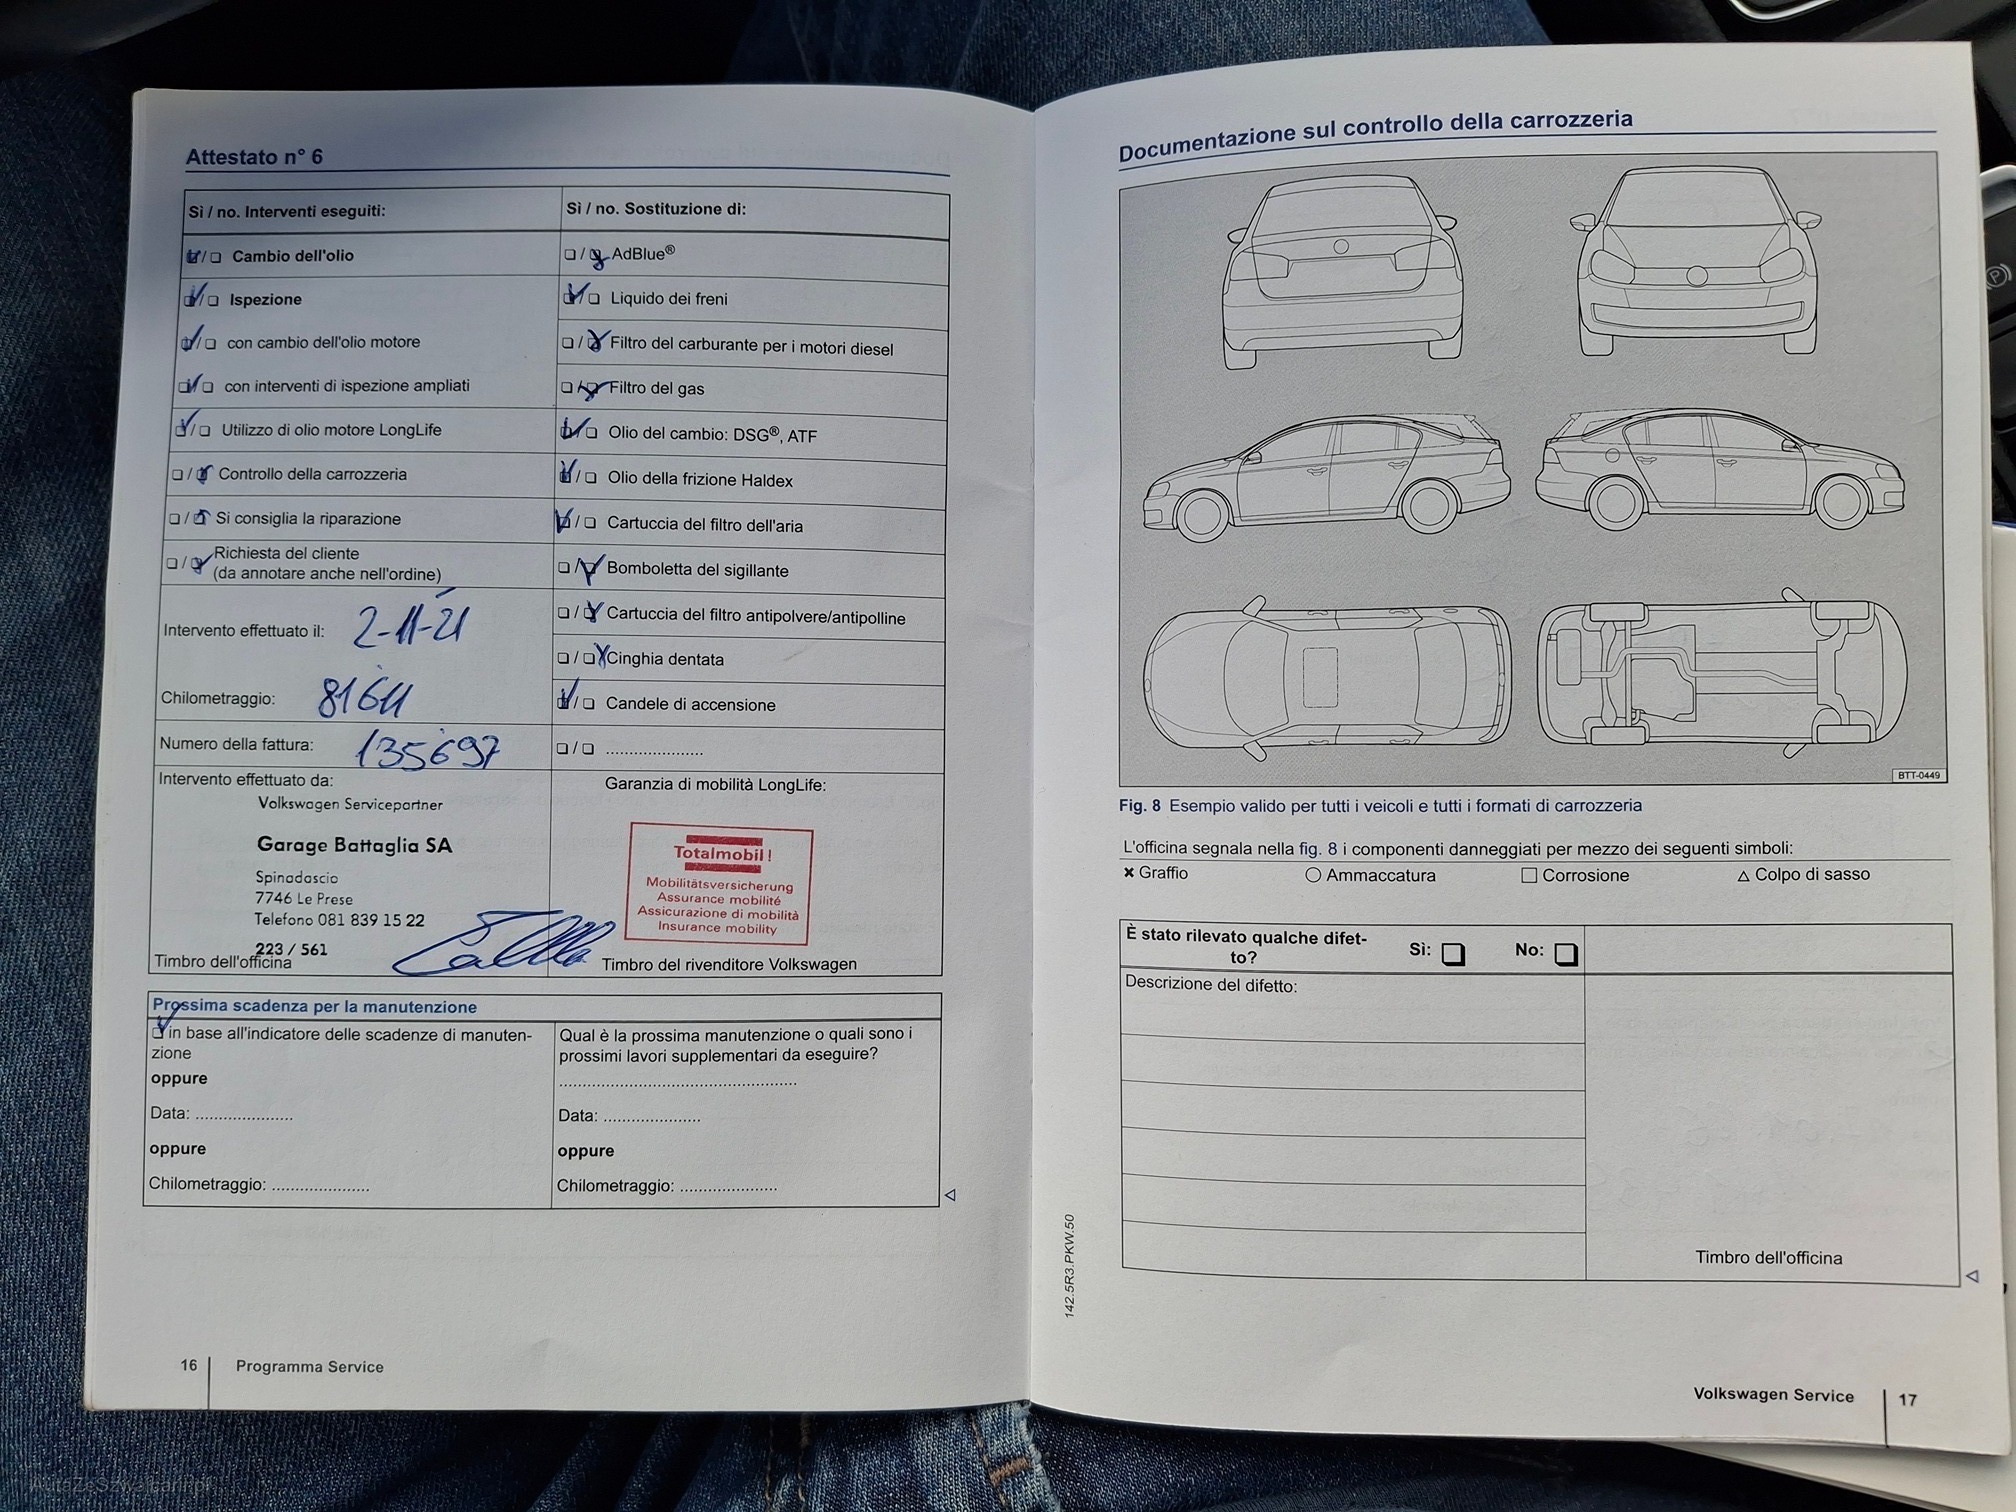 Attestato n° 6
Sì / no. Interventi eseguiti:
❏/❏ Cambio dell'olio
❏/❏ Ispezione
❏/❏ con cambio dell'olio motore
❏/❏ con interventi di ispezione ampliati
❏/❏ Utilizzo di olio motore LongLife
❏/❏ Controllo della carrozzeria
❏/❏ Si consiglia la riparazione
❏/❏ Richiesta del cliente
(da annotare anche nell'ordine)
Intervento effettuato il: 2-11-21
Chilometraggio: 81611
Numero della fattura: 135697
Intervento effettuato da:
Volkswagen Servicepartner
Garage Battaglia SA
Spinadascio
7746 Le Prese
Telefono 081 839 15 22
223 / 561
Timbro dell'officina
Sì / no. Sostituzione di:
❏/❏ AdBlue®
❏/❏ Liquido dei freni
❏/❏ Filtro del carburante per i motori diesel
❏/❏ Filtro del gas
❏/❏ Olio del cambio: DSG®, ATF
❏/❏ Olio della frizione Haldex
❏/❏ Cartuccia del filtro dell'aria
❏/❏ Bomboletta del sigillante
❏/❏ Cartuccia del filtro antipolvere/antipolline
❏/❏ Cinghia dentata
❏/❏ Candele di accensione
❏/❏ ......................
Garanzia di mobilità LongLife:
Totalmobil!
Mobilitätsversicherung
Assurance mobilité
Assicurazione di mobilità
Insurance mobility
Timbro del rivenditore Volkswagen
Prossima scadenza per la manutenzione
❏ in base all'indicatore delle scadenze di manuten-
zione
oppure
Data: ......................
oppure
Chilometraggio: ......................
Qual è la prossima manutenzione o quali sono i
prossimi lavori supplementari da eseguire?
......................................................
Data: ......................
oppure
Chilometraggio: ......................
16 Programma Service
Documentazione sul controllo della carrozzeria
BTT-0449
Fig. 8 Esempio valido per tutti i veicoli e tutti i formati di carrozzeria
L'officina segnala nella fig. 8 i componenti danneggiati per mezzo dei seguenti simboli:
✖ Graffio ○ Ammaccatura □ Corrosione △ Colpo di sasso
È stato rilevato qualche difet-
to?
Sì: ❏ No: ❏
Descrizione del difetto:
Timbro dell'officina
142.5R3.PKW.50
Volkswagen Service 17
P